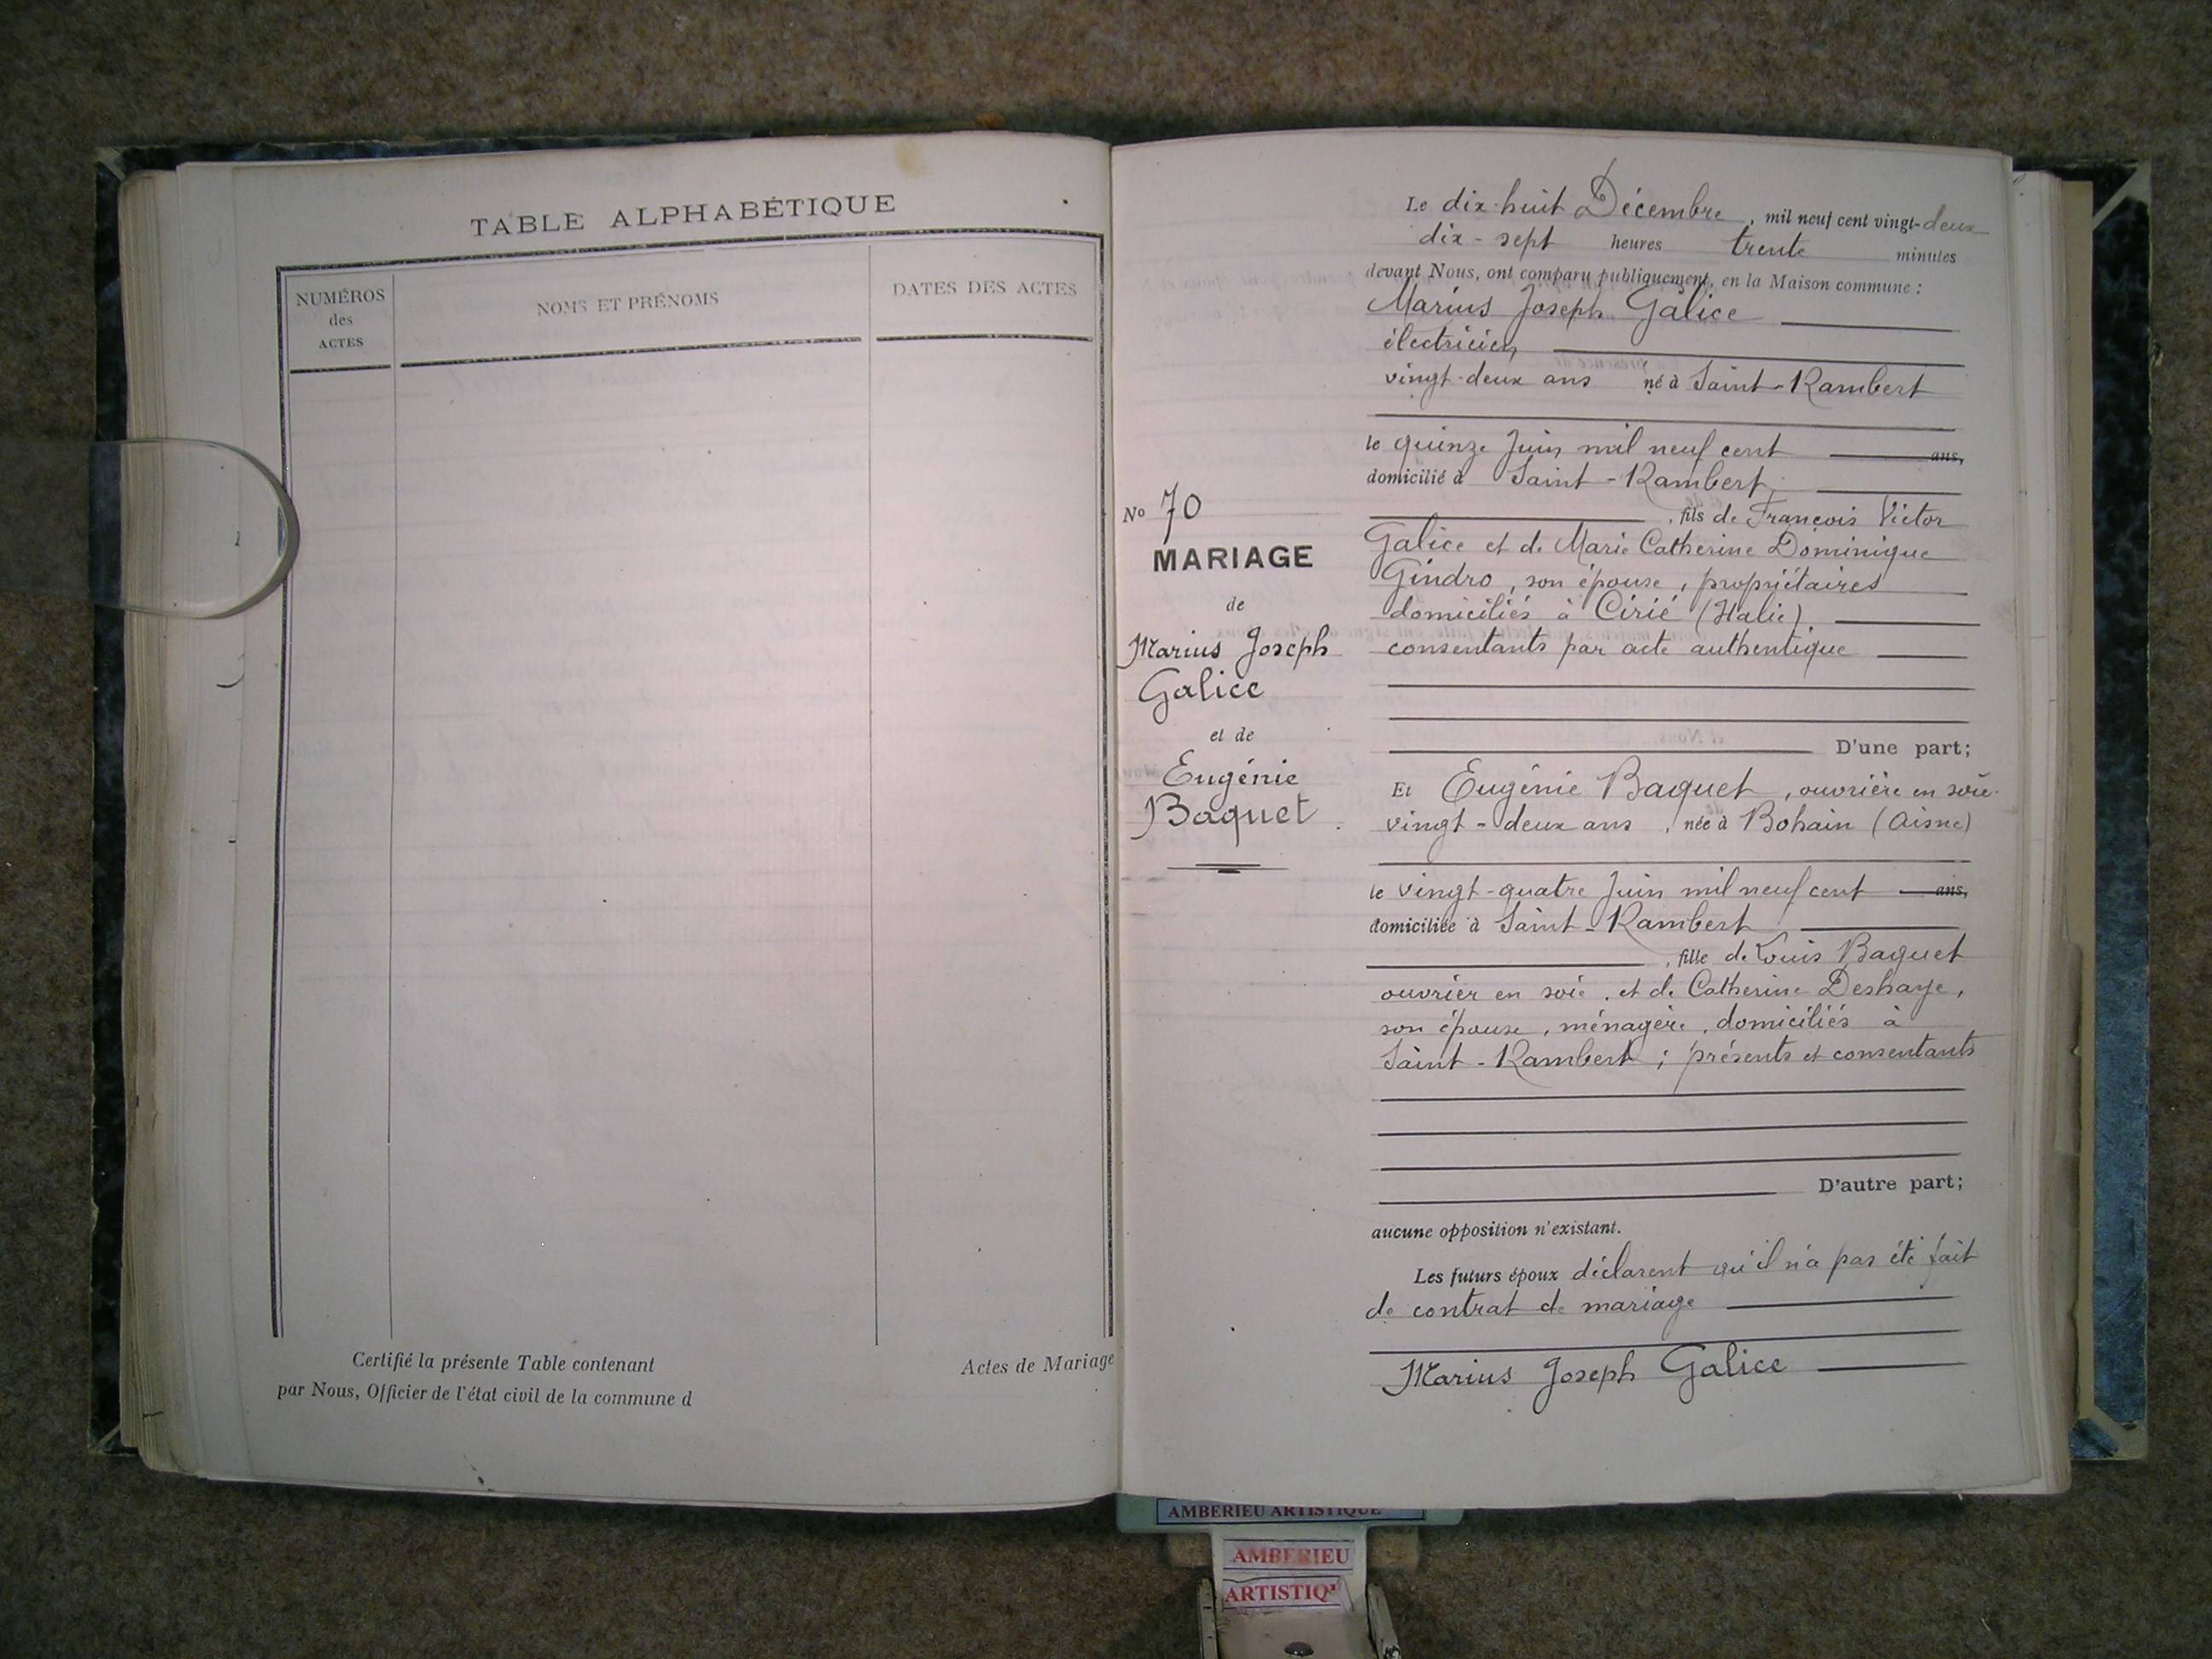 TABLE ALPHABÉTIQUE
NUMÉROS
des
ACTES
NOMS ET PRÉNOMS
DATES DES ACTES
Certifié la présente Table contenant
Actes de Mariage
par Nous, Officier de l'état civil de la commune d
No 70
MARIAGE
de
Marius Joseph
Galice
et de
Eugénie
Baquet
Le dix-huit Décembre, mil neuf cent vingt-deux
dix-sept heures trente minutes
devant Nous, ont comparu publiquement, en la Maison commune :
Marius Joseph Galice
électricien
vingt-deux ans né à Saint-Rambert
le quinze Juin mil neuf cent ans,
domicilié à Saint-Rambert
, fils de François Victor
Galice et de Marie Catherine Dominique
Gindro, son épouse, propriétaires
domiciliés à Cirié (Italie),
consentants par acte authentique
D'une part;
Et Eugénie Baquet, ouvrière en soie
vingt-deux ans, née à Bohain (Aisne)
le vingt-quatre Juin mil neuf cent ans,
domiciliée à Saint-Rambert
, fille de Louis Baquet
ouvrier en soie, et de Catherine Deshaye,
son épouse, ménagère, domiciliés à
Saint-Rambert ; présents et consentants
D'autre part;
aucune opposition n'existant.
Les futurs époux déclarent qu'il n'a pas été fait
de contrat de mariage
Marius Joseph Galice
AMBERIEU ARTISTIQUE
AMBERIEU
ARTISTIQ